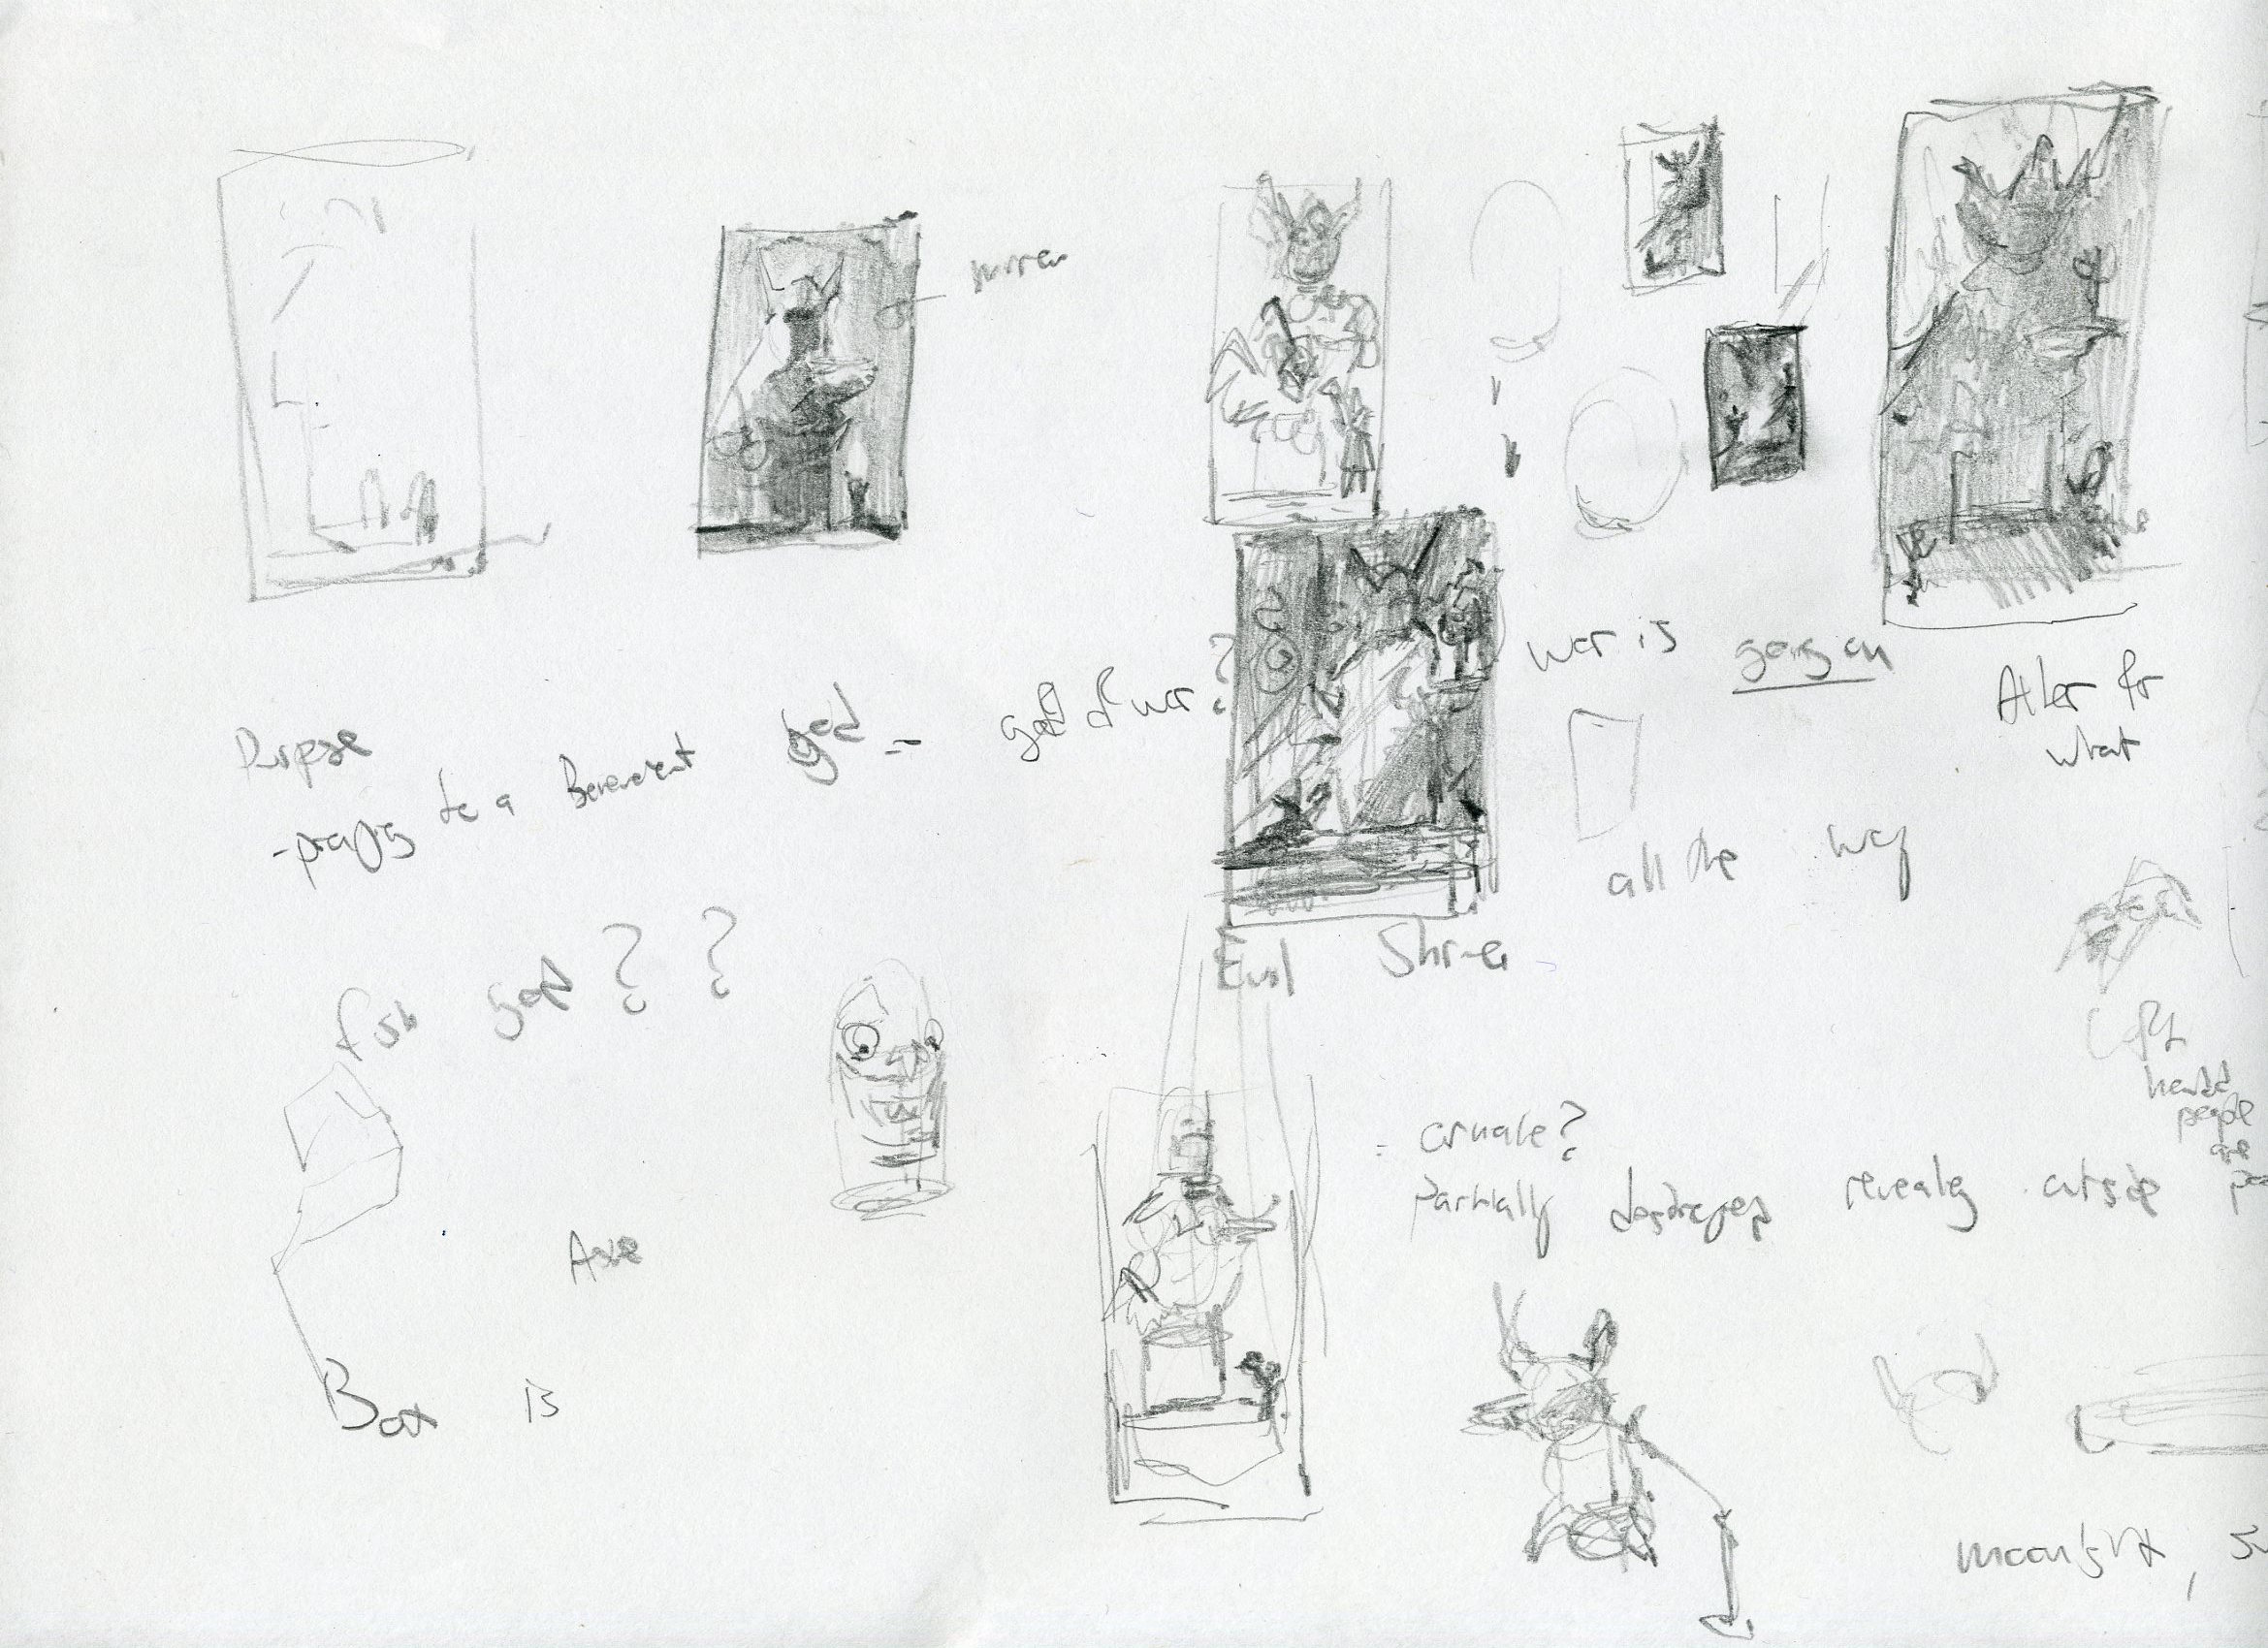 mirror
war is going on
Purpose
-praying to a Benevolent god -
god of war?
Alter for
what
all the way
fish god ? ?
Evil Shrine
headed
people
are
- ornate?
Partially destroyed revealing outside
Axe
Box is
moonlight,